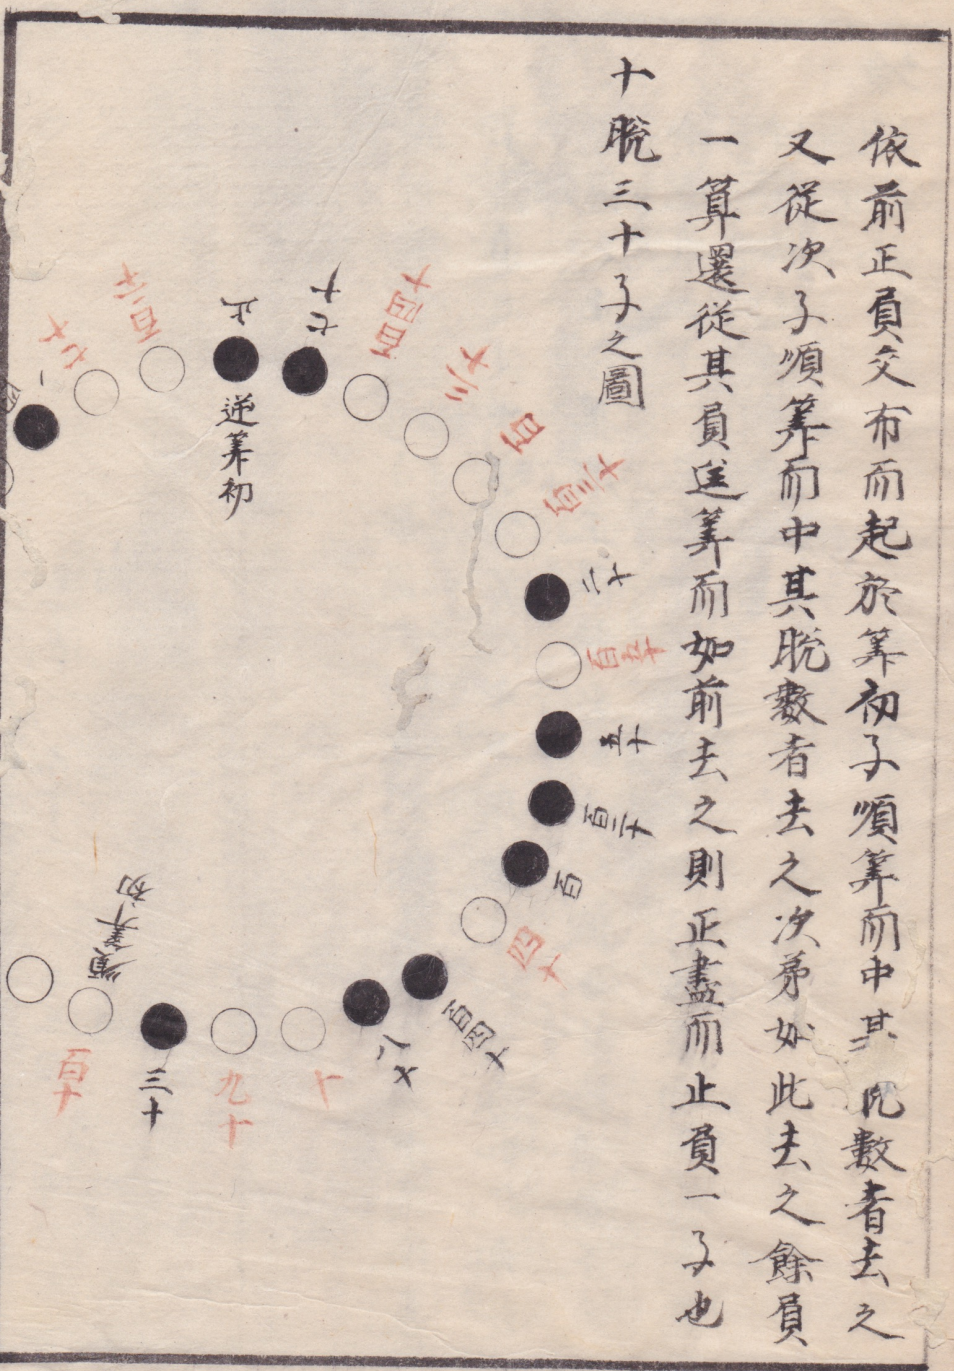 依前正負交布而起於筭初子順筭而中其脱數者去之
又從次子順筭而中其脱數者去之次第如此去之餘負
一算還從其負逆筭而如前去之則正盡而止負一子也
十脱三十子之圖
十四百
七十
止
百六十
七十
一
逆筭初
十三
百
百三十
二十
百五十
五十
百二十
百
四十
百四十
八十
十
九十
三十
百十
順筭初